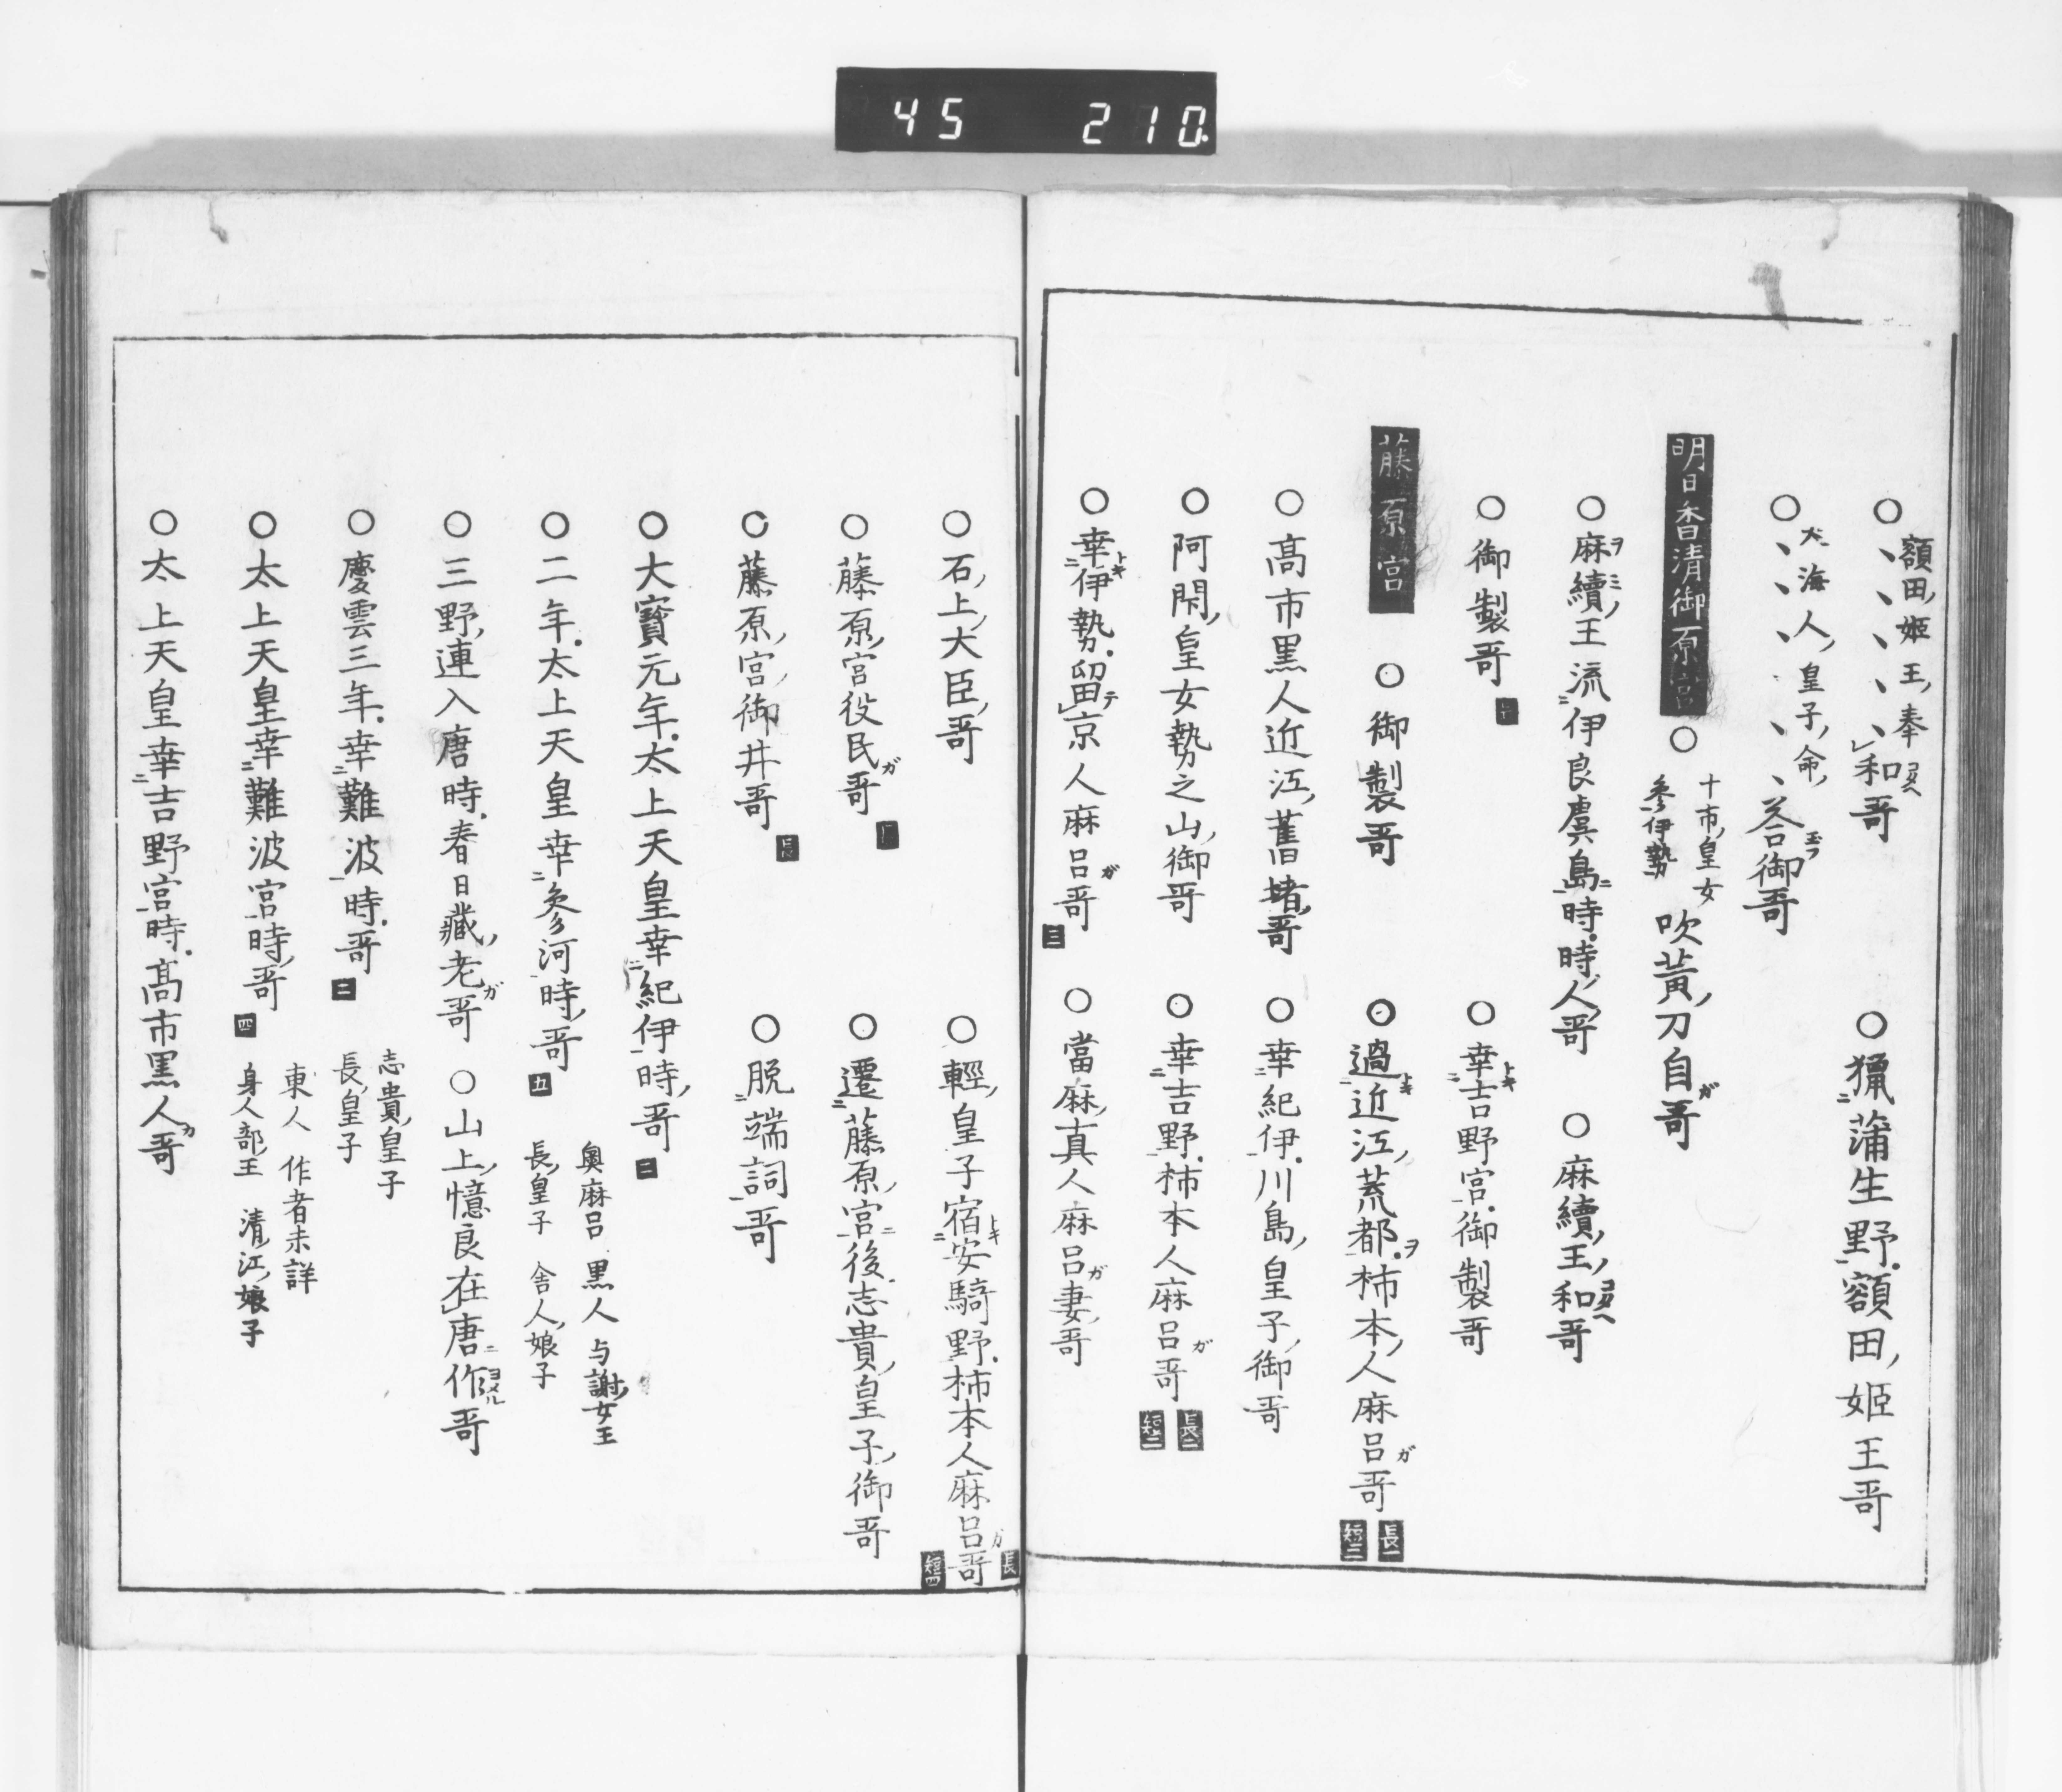 45 210
○額田姫王奉、、、、、和哥 ○獵蒲生野額田姫王哥
○大海人皇子命、、、、、荅御哥
明日香清御原宮 ○十市皇女参伊勢 吹黄刀自ガ哥
○麻續王流伊良虞島時時人哥 ○麻續王和哥
○御製哥 ○幸吉野宮御製哥
藤原宮 ○御製哥 ○過近江荒都柿本人麻呂ガ哥 長一 短二
○髙市黒人近江舊堵哥 ○幸紀伊川島皇子御哥
○阿閇皇女勢之山御哥 ○幸吉野柿本人麻呂ガ哥 長二 短二
○幸伊勢留京人麻呂ガ哥 三 ○當麻真人麻呂ガ妻哥
○石上大臣哥 ○輕皇子宿安騎野柿本人麻呂ガ哥 長 短四
○藤原宮役民ガ哥 ○遷藤原宮後志貴皇子御哥
○藤原宮御井哥 長 ○脱端詞哥
○大寳元年太上天皇幸紀伊時哥 二
○二年太上天皇幸参河時哥 五 奥麻呂 黒人 与謝女王 長皇子 舎人娘子
○三野連入唐時春日藏老ガ哥 ○山上憶良在唐作哥
○慶雲三年幸難波時哥 二 志貴皇子 長皇子
○太上天皇幸難波宮時哥 四 東人 作者未詳 身人部王 清江娘子
○太上天皇幸吉野宮時髙市黒人ガ哥